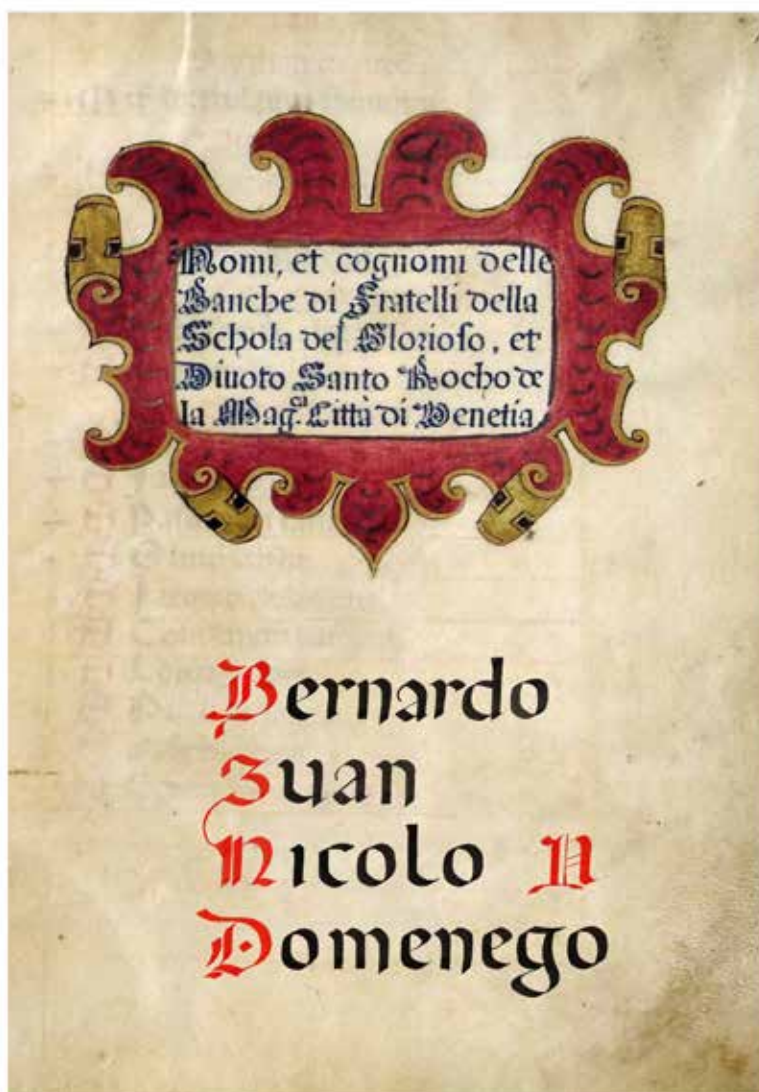 Nomi, et cognomi delle
Banche di Fratelli della
Schola del Glorioso, et
Diuoto Santo Rocho de
la Mag.ca Città di Venetia
Bernardo
Zuan
Nicolo N
Domenego